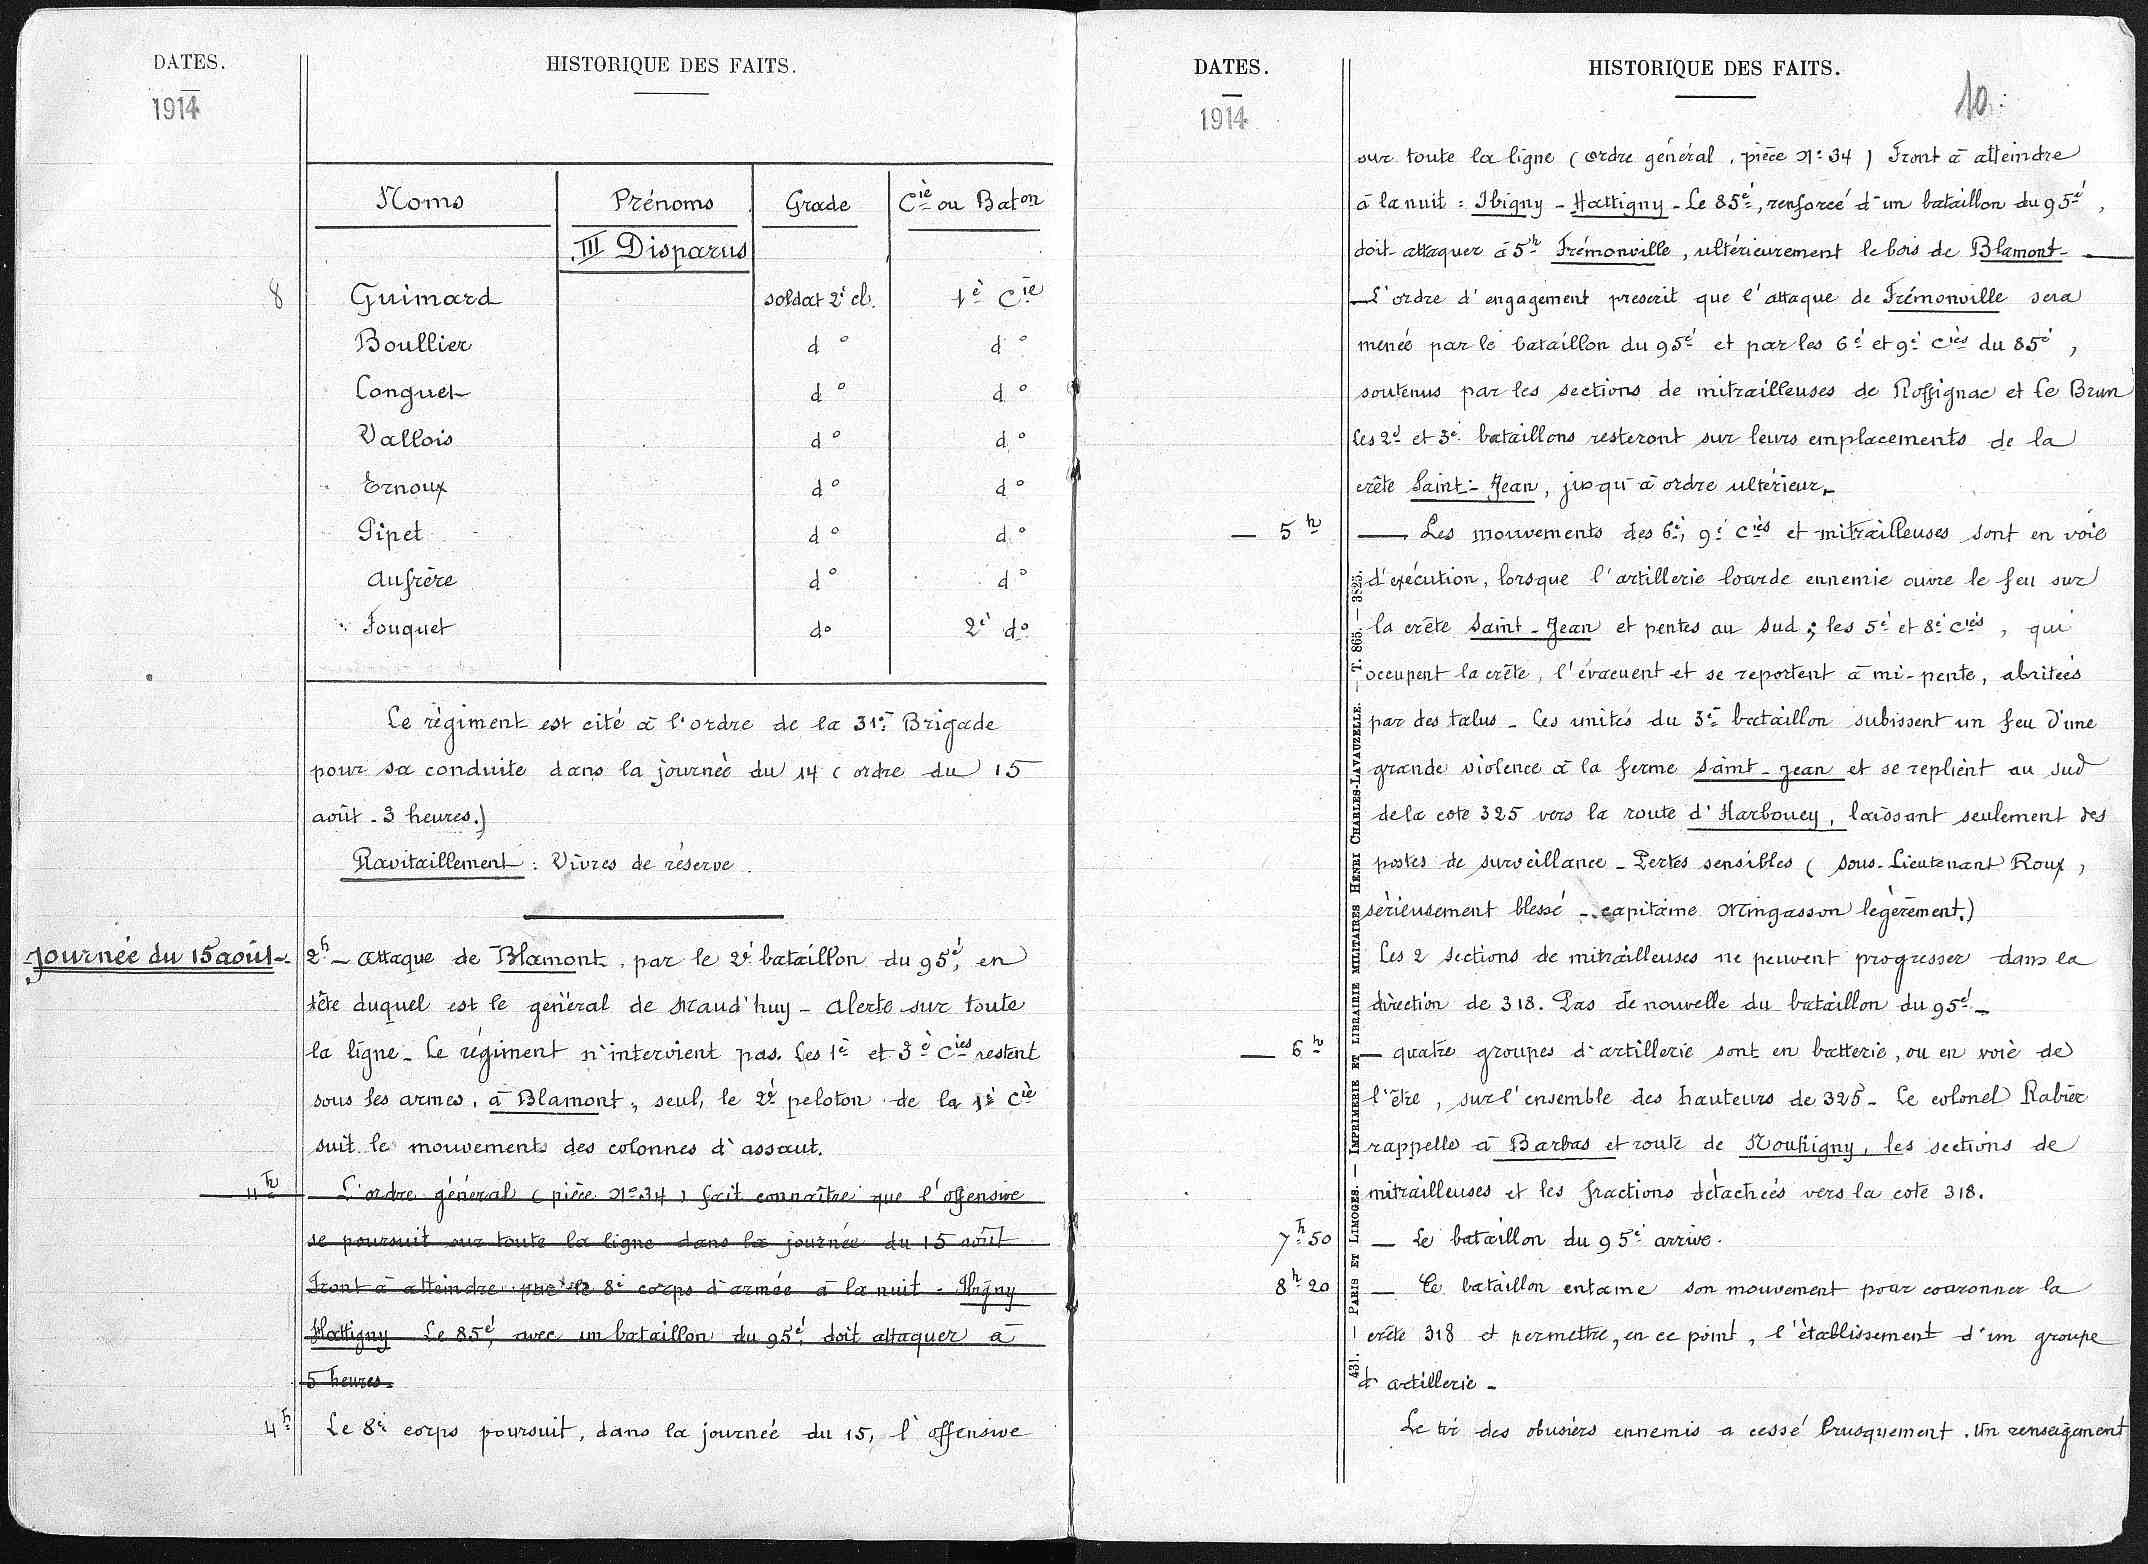 DATES.
HISTORIQUE DES FAITS.
1914
Noms Prénoms Grade Cie ou Baton
III Disparus
8 Guimard soldat 2è cl. 1è Cie
Boullier d° d°
Conguet d° d°
Vallois d° d°
Ernoux d° d°
Pipet d° d°
Aufrère d° d°
Fouquet d° 2è d°
Le régiment est cité à l'ordre de la 31è Brigade
pour sa conduite dans la journée du 14 (ordre du 15
août - 3 heures.)
Ravitaillement : Vivres de réserve.
Journée du 15 août - 2h - Attaque de Blamont, par le 2è bataillon du 95è, en
tête duquel est le général de Maud'huy - Alerte sur toute
la ligne - Le régiment n'intervient pas. Les 1è et 3è Cies restent
sous les armes, à Blamont, seul, le 2è peloton de la 1è Cie
suit le mouvement des colonnes d'assaut.
4h L'ordre général (pièce N° 34) fait connaître que l'offensive
se poursuit sur toute la ligne dans la journée du 15 août
Front à atteindre par le 8è corps d'armée à la nuit - Ibigny
Hattigny Le 85è, avec un bataillon du 95è, doit attaquer à
5 heures.
4h Le 8è corps poursuit, dans la journée du 15, l'offensive
DATES.
HISTORIQUE DES FAITS.
1914
10.
sur toute la ligne (ordre général, pièce N° 34) Front à atteindre
à la nuit : Ibigny - Hattigny - Le 85è, renforcé d'un bataillon du 95è,
doit attaquer à 5h Frémonville, ultérieurement le bois de Blamont -
L'ordre d'engagement prescrit que l'attaque de Frémonville sera
menée par le bataillon du 95è et par les 6è et 9è Cies du 85è,
soutenus par les sections de mitrailleuses de Roffignac et Le Brun
Les 2è et 3è bataillons resteront sur leurs emplacements de la
crête Saint-Jean, jusqu'à ordre ultérieur.
- 5h - Les mouvements des 6è, 9è Cies et mitrailleuses sont en voie
d'exécution, lorsque l'artillerie lourde ennemie ouvre le feu sur
la crête Saint-Jean et pentes au Sud ; les 5è et 8è Cies, qui
occupent la crête, l'évacuent et se reportent à mi-pente, abritées
par des talus - Les unités du 3è bataillon subissent un feu d'une
grande violence à la ferme Saint-Jean et se replient au sud
de la cote 325 vers la route d'Harbouey, laissant seulement des
postes de surveillance - Pertes sensibles (Sous-Lieutenant Roux,
sérieusement blessé - capitaine Mingasson légèrement.)
Les 2 sections de mitrailleuses ne peuvent progresser dans la
direction de 318. Pas de nouvelle du bataillon du 95è -
- 6h - quatre groupes d'artillerie sont en batterie, ou en voie de
l'être, sur l'ensemble des hauteurs de 325 - Le colonel Rabier
rappelle à Barbas et route de Nonhigny, les sections de
mitrailleuses et les fractions détachées vers la cote 318.
7h 50 - Le bataillon du 95è arrive.
8h 20 - Ce bataillon entame son mouvement pour couronner la
crête 318 et permettre, en ce point, l'établissement d'un groupe
d'artillerie -
Le tir des obusiers ennemis a cessé brusquement. Un renseignement
431. — PARIS ET LIMOGES. — IMPRIMERIE ET LIBRAIRIE MILITAIRES HENRI CHARLES-LAVAUZELLE. — T. 865. — 3825.